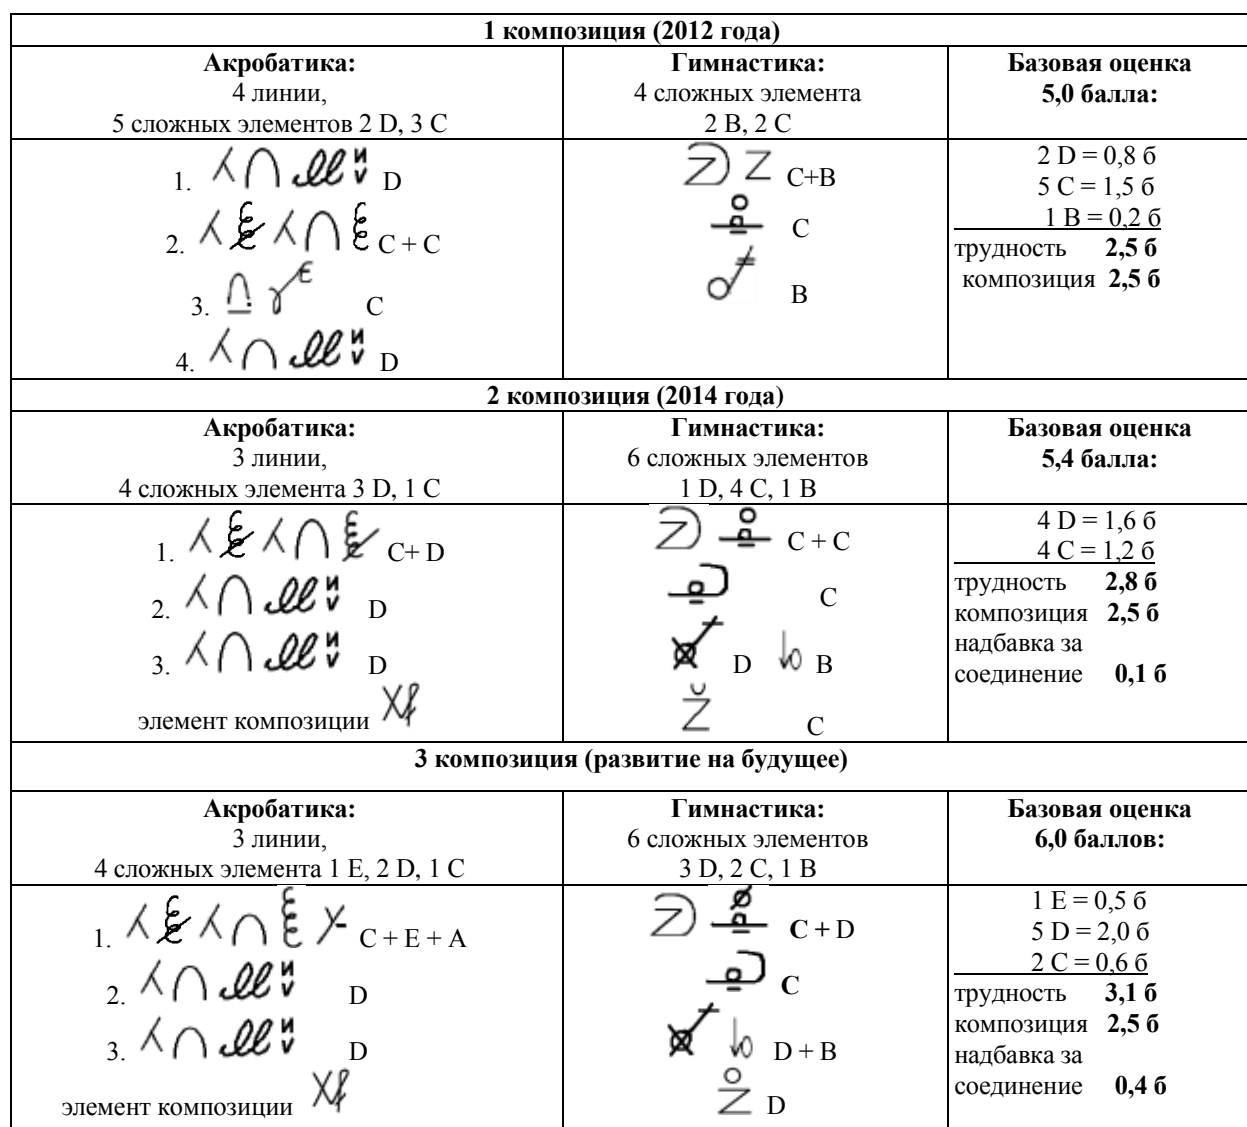 1 композиция (2012 года)
Акробатика:
4 линии,
5 сложных элементов 2 D, 3 C
Гимнастика:
4 сложных элемента
2 B, 2 C
Базовая оценка
5,0 балла:
1. D
2. C + C
3. C
4. D
C+B
C
B
2 D = 0,8 б
5 C = 1,5 б
1 B = 0,2 б
трудность 2,5 б
композиция 2,5 б
2 композиция (2014 года)
Акробатика:
3 линии,
4 сложных элемента 3 D, 1 C
Гимнастика:
6 сложных элементов
1 D, 4 C, 1 B
Базовая оценка
5,4 балла:
1. C+ D
2. D
3. D
элемент композиции
C + C
C
D B
C
4 D = 1,6 б
4 C = 1,2 б
трудность 2,8 б
композиция 2,5 б
надбавка за
соединение 0,1 б
3 композиция (развитие на будущее)
Акробатика:
3 линии,
4 сложных элемента 1 E, 2 D, 1 C
Гимнастика:
6 сложных элементов
3 D, 2 C, 1 B
Базовая оценка
6,0 баллов:
1. C + E + A
2. D
3. D
элемент композиции
C + D
C
D + B
D
1 E = 0,5 б
5 D = 2,0 б
2 C = 0,6 б
трудность 3,1 б
композиция 2,5 б
надбавка за
соединение 0,4 б